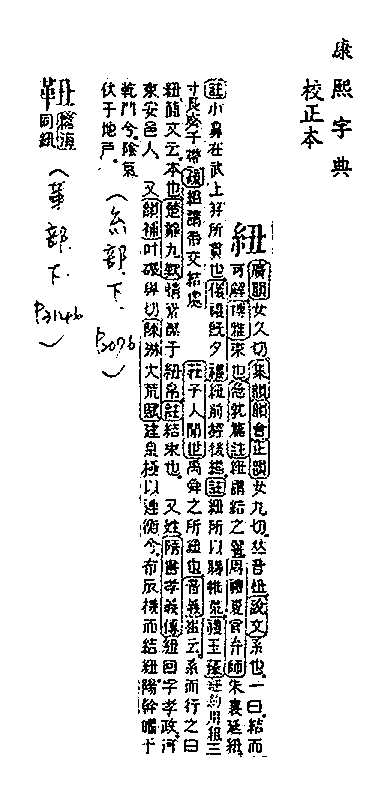 康熙字典
校正本
紐
廣韻女久切集韻韻會正韻女九切𠀤音忸說文系也一曰結而
可解博雅束也急就篇註紐謂結之鬈周禮夏官弁師朱裏延紐
註小鼻在武上笄所貫也儀禮旣夕禮紐前經後緇註紐所以聯帷荒禮玉藻紐約用組三
寸長齊于帶疏紐謂帶交結處 莊子人閒世禹舜之所紐也音義崔云系而行之曰
紐簡文云本也楚辭九歎情素潔于紐帛註結束也。又姓隋書孝義傳紐回字孝政河
東安邑人。又韻補叶碾與切陳琳大荒賦建皇極以連衡兮布辰機而結紐陽幹曜于
乾門兮陰氣
伏于地戶。
(糸部下.
靵 篇海同紐
(革部下.